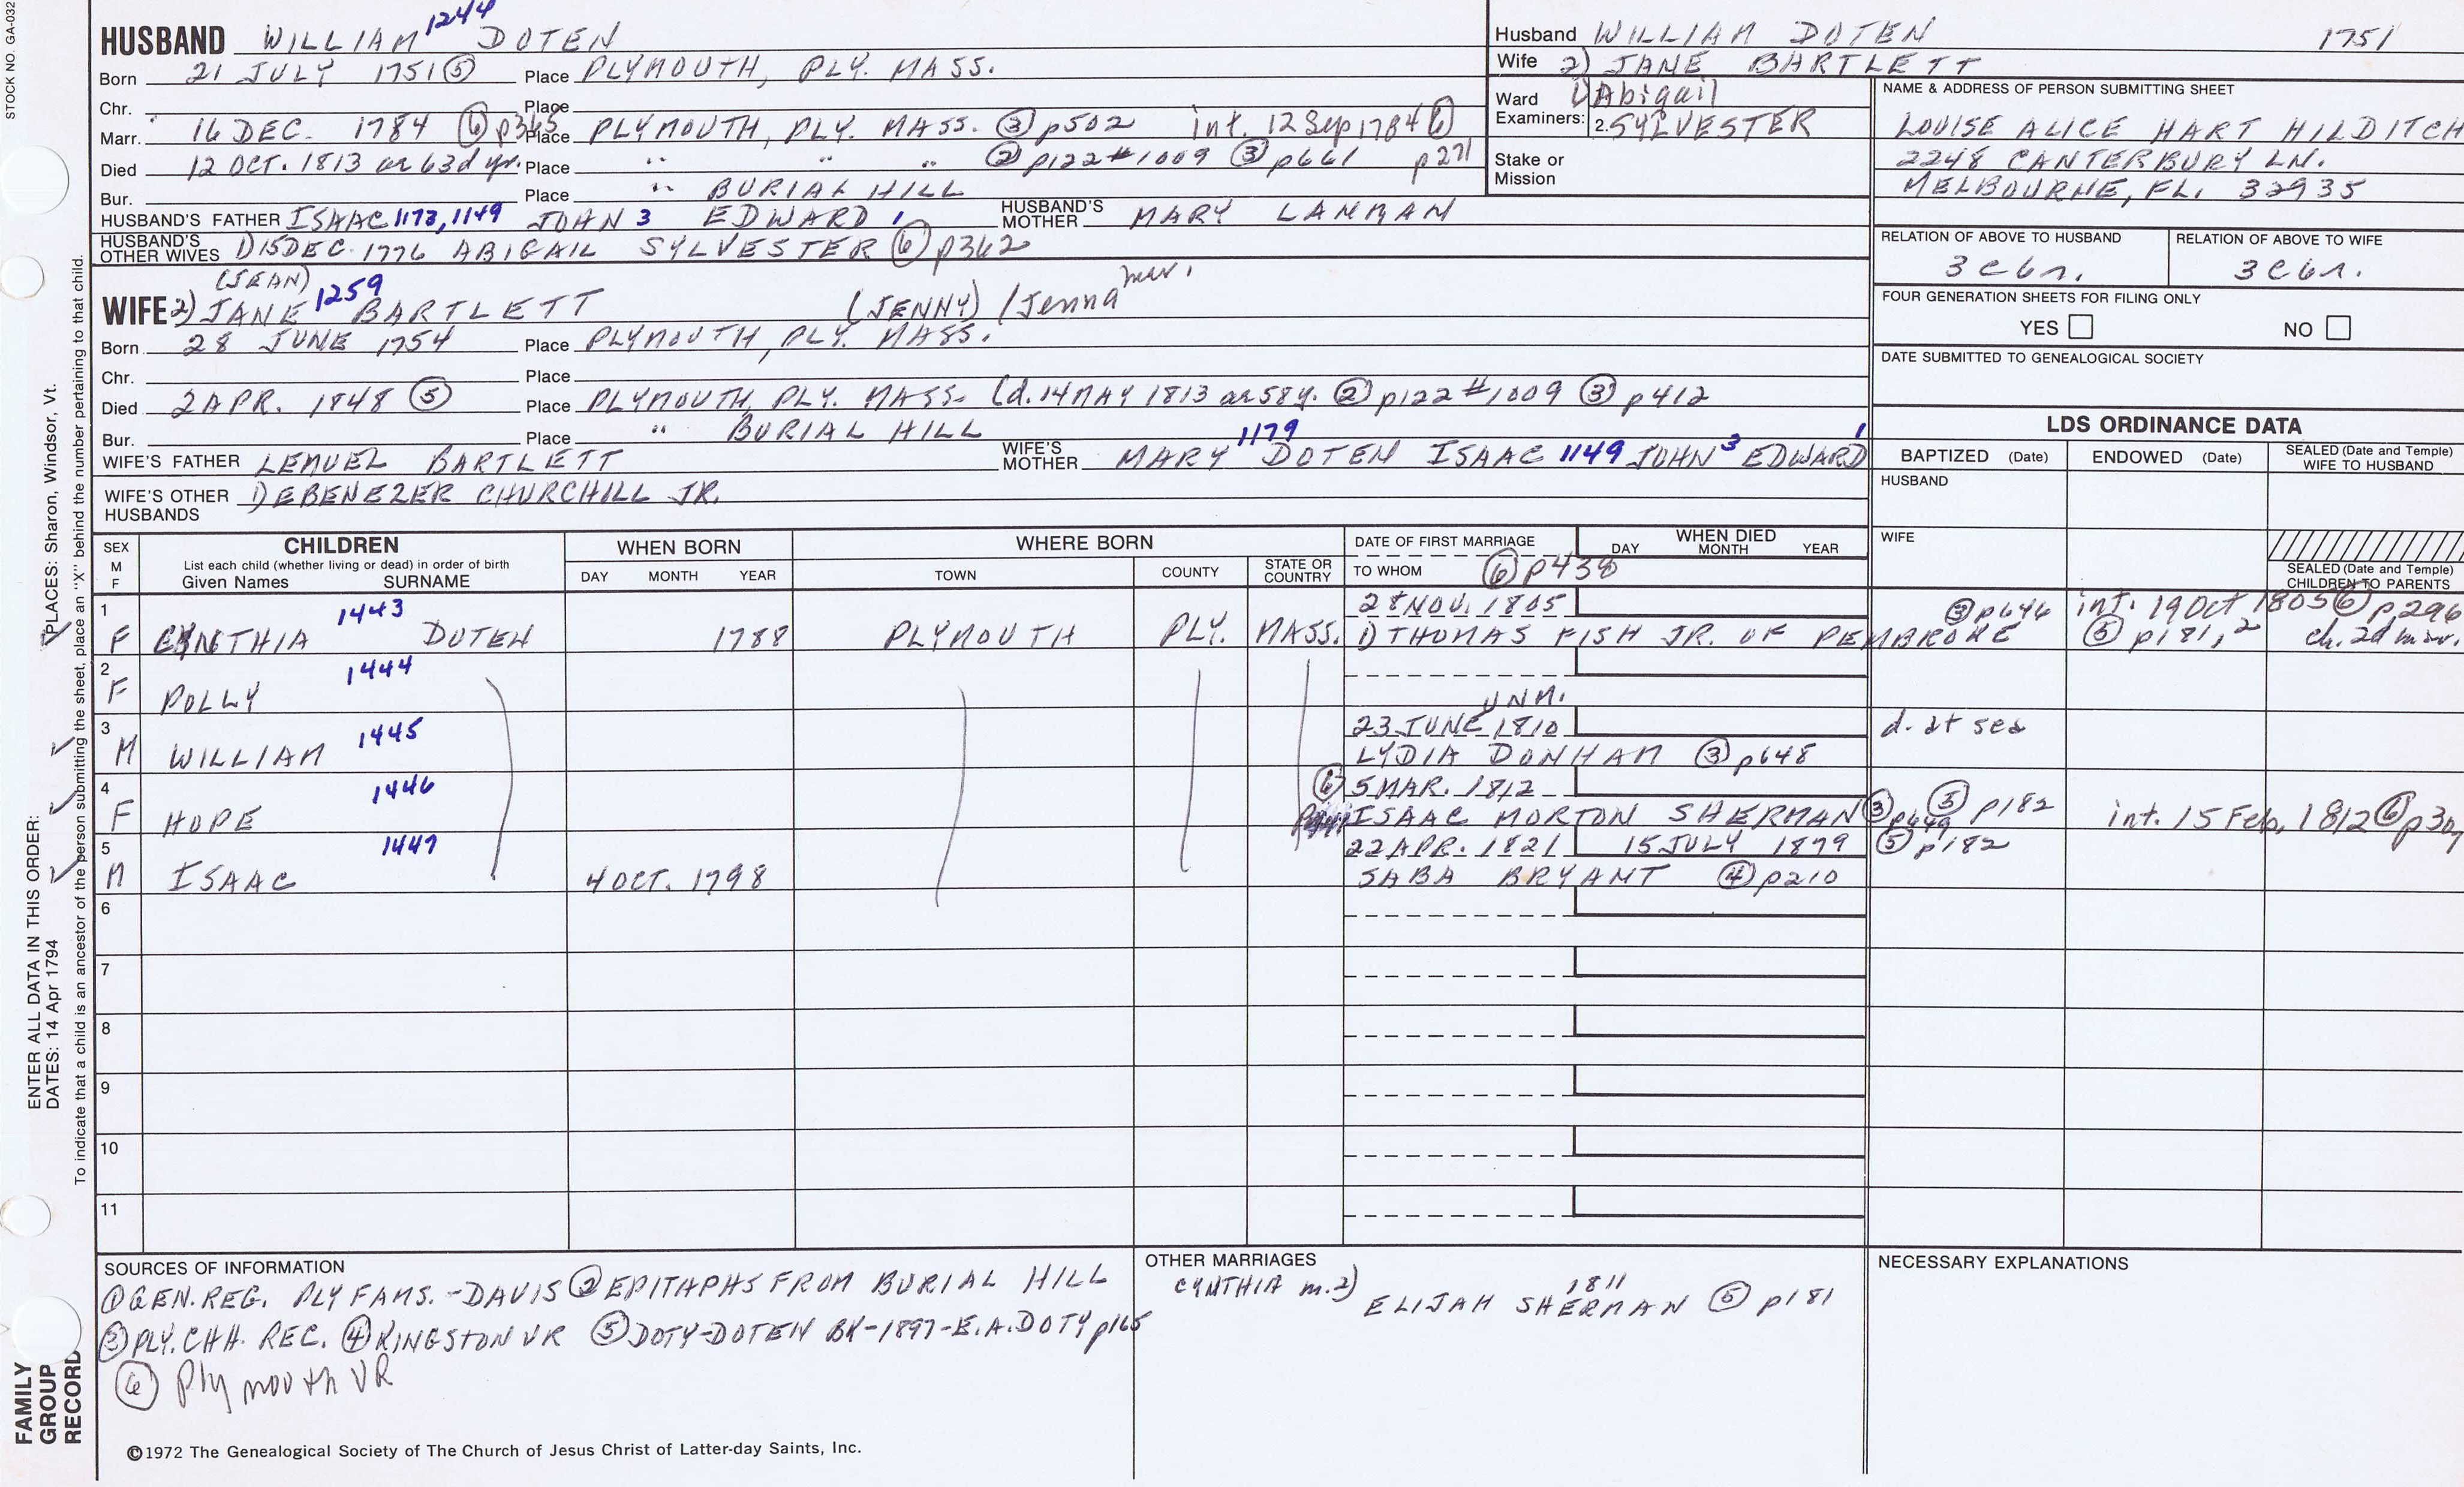 STOCK NO. GA-032
HUSBAND WILLIAM 1244 DOTEN
Born 21 JULY 1751 ⑤ Place PLYMOUTH, PLY. MASS.
Chr. Place
Marr. 16 DEC. 1784 ⑥ p365 Place PLYMOUTH, PLY. MASS. ③ p502 int. 12 Sep 1784 ⑥ p271
Died 12 OCT. 1813 æ 63d yr. Place " " " ② p122 #1009 ③ p661
Bur. Place " BURIAL HILL
HUSBAND'S FATHER ISAAC 1173, 1149 JOHN 3 EDWARD 1 HUSBAND'S MOTHER MARY LANMAN
HUSBAND'S OTHER WIVES 1) 5 DEC. 1776 ABIGAIL SYLVESTER ⑥ p362
(JEAN)
WIFE 2) JANE 1259 BARTLETT (JENNY) / Jenna mar.
Born 28 JUNE 1754 Place PLYMOUTH, PLY. MASS.
Chr. Place
Died 2 APR. 1848 ⑤ Place PLYMOUTH, PLY. MASS. (d. 14 MAY 1813 æ 58 y. ② p122 #1009 ③ p412
Bur. Place " BURIAL HILL
WIFE'S FATHER LEMUEL BARTLETT WIFE'S MOTHER MARY 1179 DOTEN ISAAC 1149 JOHN 3 EDWARD 1
WIFE'S OTHER HUSBANDS 1) EBENEZER CHURCHILL JR.
Husband WILLIAM DOTEN 1751
Wife 2) JANE BARTLETT
Ward 1) Abigail
Examiners: 2. SYLVESTER
Stake or Mission
NAME & ADDRESS OF PERSON SUBMITTING SHEET
LOUISE ALICE HART HILDITCH
2248 CANTERBURY LN.
MELBOURNE, FL. 32935
RELATION OF ABOVE TO HUSBAND RELATION OF ABOVE TO WIFE
3 c 6 r. 3 c 6 r.
FOUR GENERATION SHEETS FOR FILING ONLY
YES NO
DATE SUBMITTED TO GENEALOGICAL SOCIETY
LDS ORDINANCE DATA
BAPTIZED (Date) ENDOWED (Date) SEALED (Date and Temple) WIFE TO HUSBAND
HUSBAND
WIFE
SEALED (Date and Temple) CHILDREN TO PARENTS
SEX M F CHILDREN WHEN BORN WHERE BORN DATE OF FIRST MARRIAGE WHEN DIED
List each child (whether living or dead) in order of birth
Given Names SURNAME DAY MONTH YEAR TOWN COUNTY STATE OR COUNTRY TO WHOM DAY MONTH YEAR
⑥ p438
1 1443 28 NOV. 1805 ③ p646 int. 19 Oct 1805 ⑥ p296
F CYNTHIA DOTEN 1788 PLYMOUTH PLY. MASS. 1) THOMAS FISH JR. OF PEMBROKE ⑤ p181, 2 ch. 2d mar.
2 1444
F POLLY UNM.
3 1445 23 JUNE 1810 d. at sea
M WILLIAM LYDIA DONHAM ③ p648
4 1446 ⑥ 5 MAR. 1812
F HOPE ISAAC MORTON SHERMAN ③ p649 ⑤ p182 int. 15 Feb, 1812 ⑥
5 1447 22 APR. 1821 15 JULY 1879 ⑤ p182
M ISAAC 4 OCT. 1798 SABA BRYANT ④ p210
6
7
8
9
10
11
SOURCES OF INFORMATION
① GEN. REG. PLY FAMS. - DAVIS ② EPITAPHS FROM BURIAL HILL
③ PLY. CHH. REC. ④ KINGSTON VR ⑤ DOTY-DOTEN BK-1897-E.A. DOTY p165
⑥ Plymouth VR
OTHER MARRIAGES
CYNTHIA m. 2) 1811
ELIJAH SHERMAN ⑤ p181
NECESSARY EXPLANATIONS
©1972 The Genealogical Society of The Church of Jesus Christ of Latter-day Saints, Inc.
ENTER ALL DATA IN THIS ORDER:
DATES: 14 Apr 1794 PLACES: Sharon, Windsor, Vt.
To indicate that a child is an ancestor of the person submitting the sheet, place an "X" behind the number pertaining to that child.
FAMILY GROUP RECORD